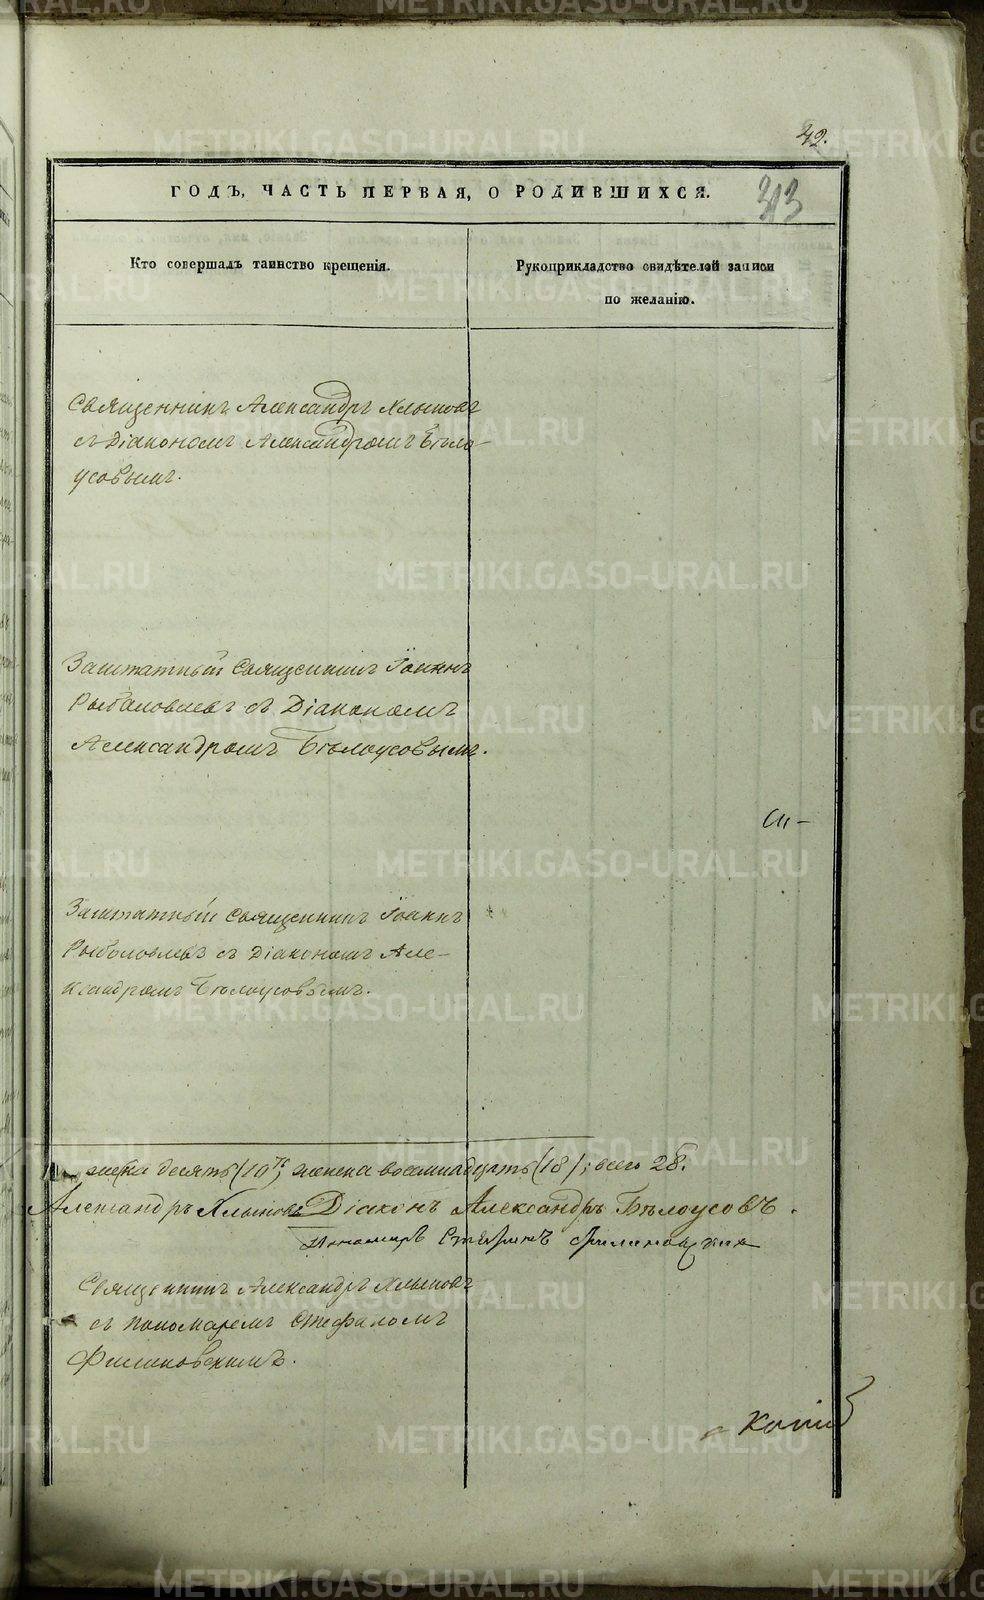 42.
ГОДЪ, ЧАСТЬ ПЕРВАЯ, О РОДИВШИХСЯ.
Кто совершалъ таинство крещенія.
Рукоприкладство свидѣтелей записи
по желанію.
Священникъ Александръ Хлыновъ
съ Діакономъ Александромъ Бѣло-
усовымъ.
Заштатный Священникъ Іоаннъ
Рыболовлевъ съ Діакономъ
Александромъ Бѣлоусовымъ.
Заштатный Священникъ Іоаннъ
Рыболовлевъ съ Діакономъ Але-
ксандромъ Бѣлоусовымъ.
десять (10), женска восемнадцать (18); всего 28.
Александръ Хлыновъ Діаконъ Александръ Бѣлоусовъ.
Пономарь Стефанъ
Священникъ Александръ Хлыновъ
съ пономаремъ Стефаномъ
Филиновскимъ.
METRIKI.GASO-URAL.RU